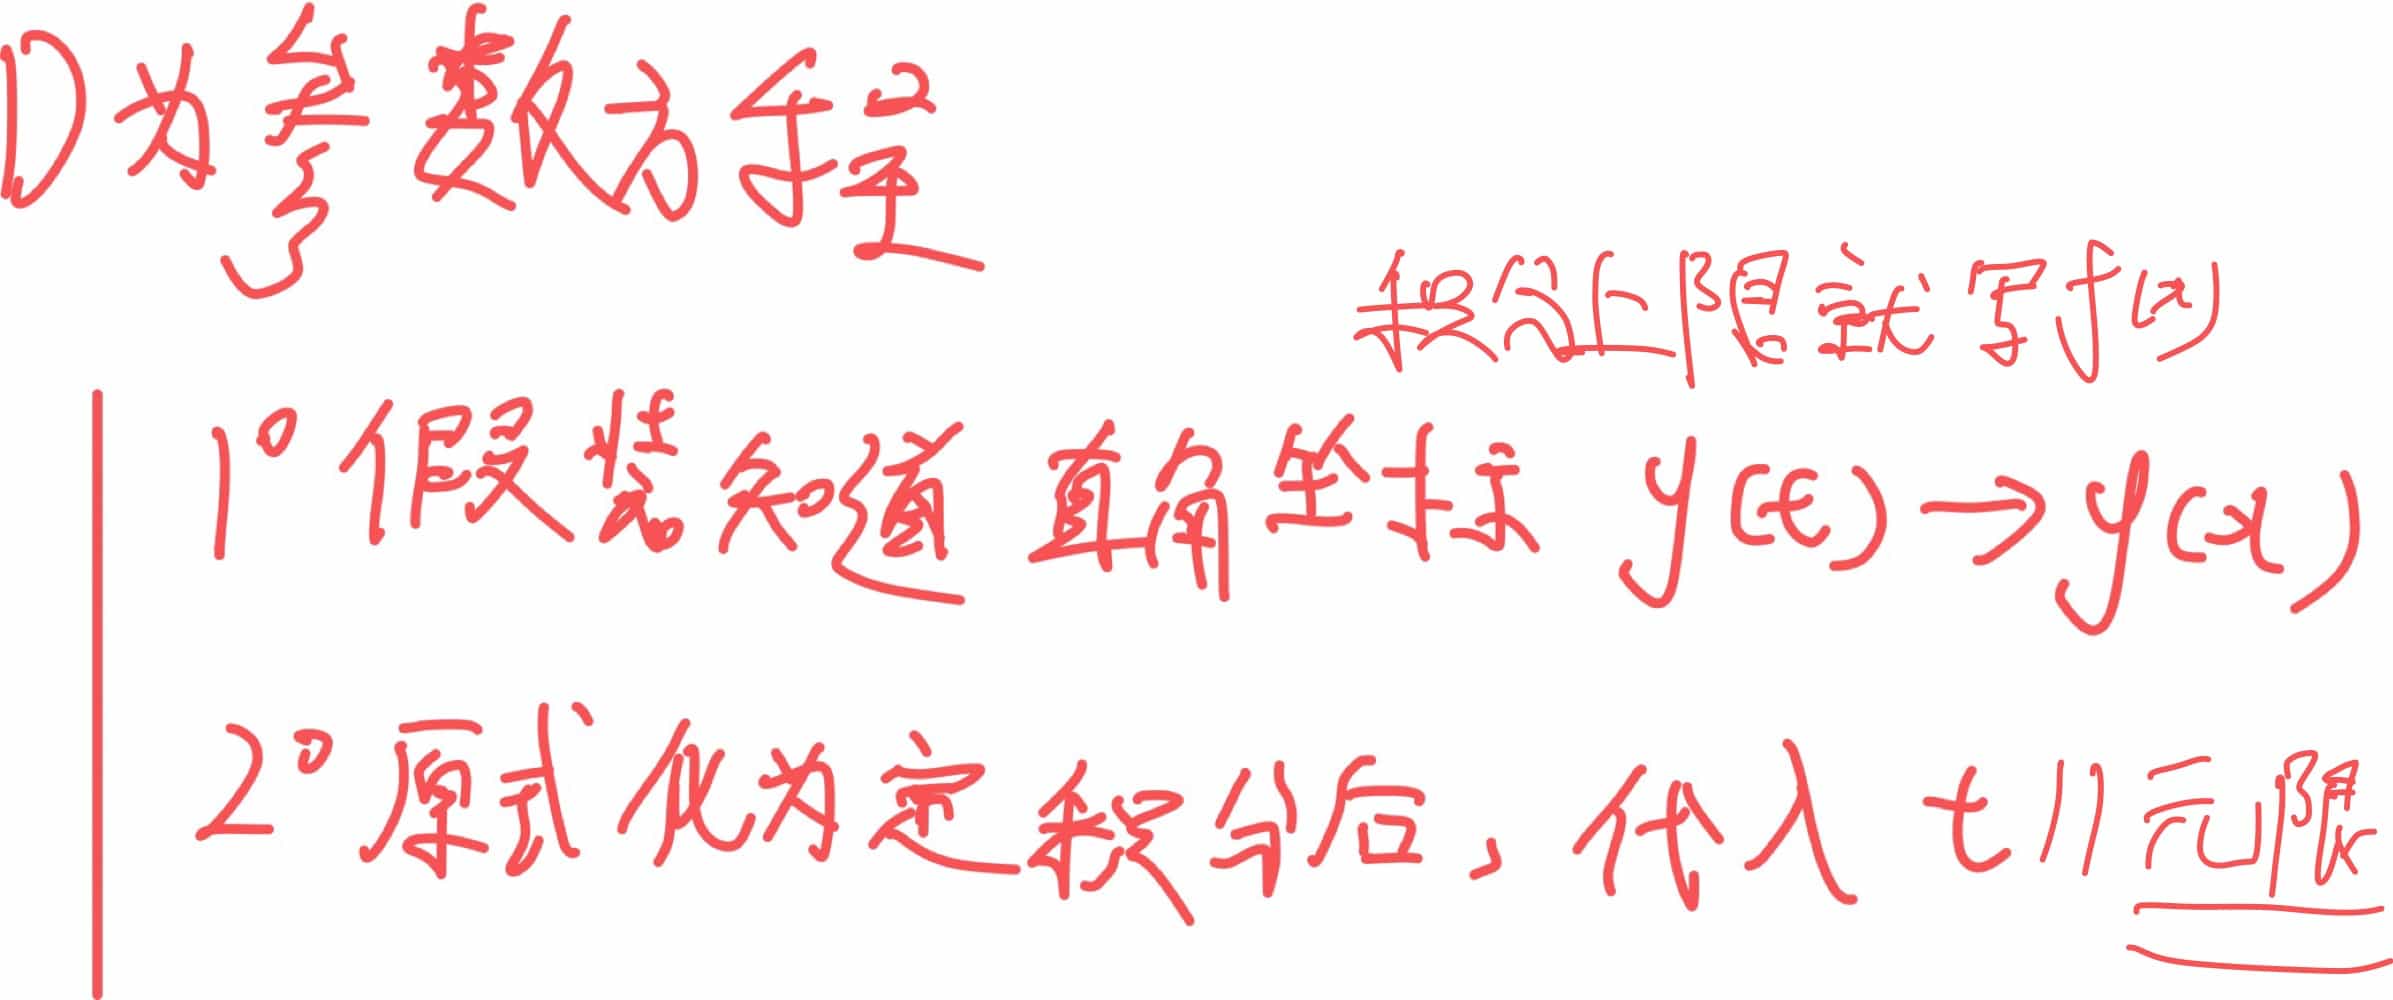 D为参数方程
积分上限就写f(x)
1° 假装知道直角坐标 y(t)→y(x)
2° 原式化为定积分后,代入t // 元限